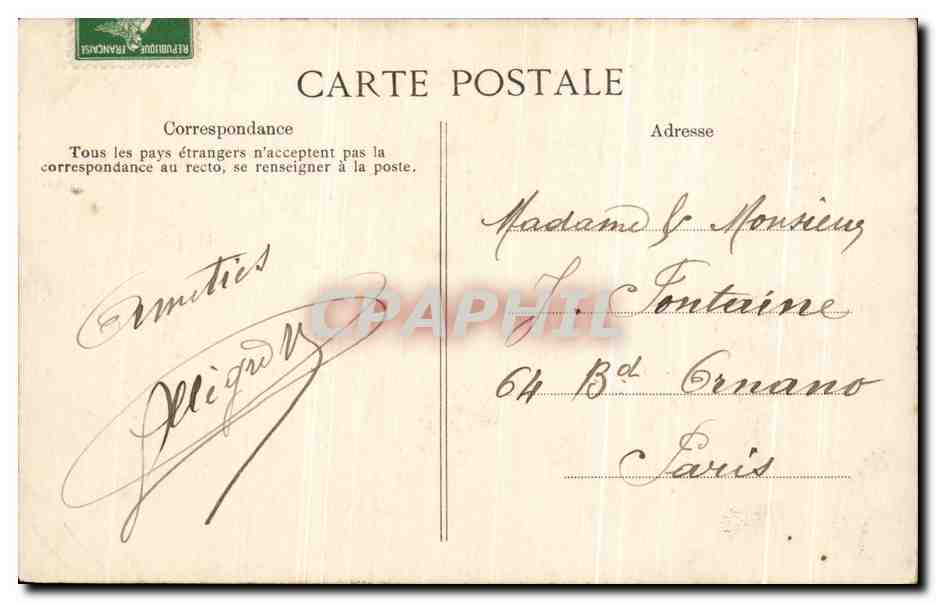 REPUBLIQUE FRANÇAISE
CARTE POSTALE
Correspondance
Tous les pays étrangers n'acceptent pas la
correspondance au recto, se renseigner à la poste.
Amitiés
Adresse
Madame & Monsieur
J. Fontaine
64 Bd Ornano
Paris
CPAPHIL